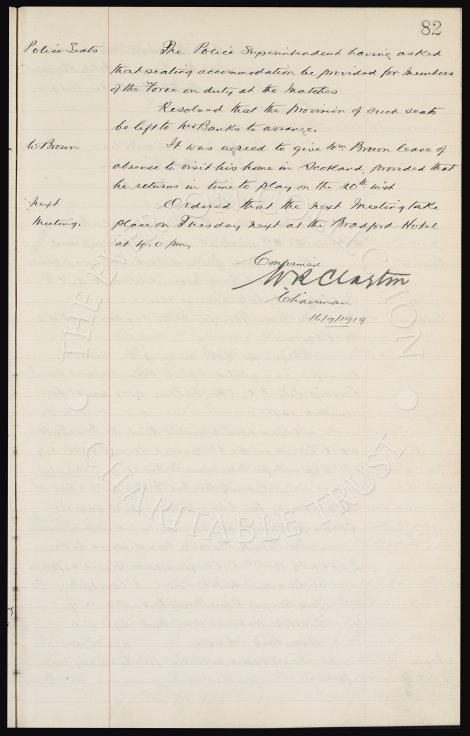 82
Police Seats The Police Superintendent having asked
that seating accommodation be provided for members
of the Force on duty at the matches
Resolved that the provision of such seats
be left to Mr Banks to arrange.
W Brown It was agreed to give Wm Brown leave of
absence to visit his home in Scotland, provided that
he returns in time to play on the 20th inst
next Ordered that the next meeting take
meeting. place on Tuesday next at the Bradford Hotel
at 4.0 pm.
Confirmed
W R Clayton
Chairman
16/9/1919
THE EVERTON COLLECTION
CHARITABLE TRUST